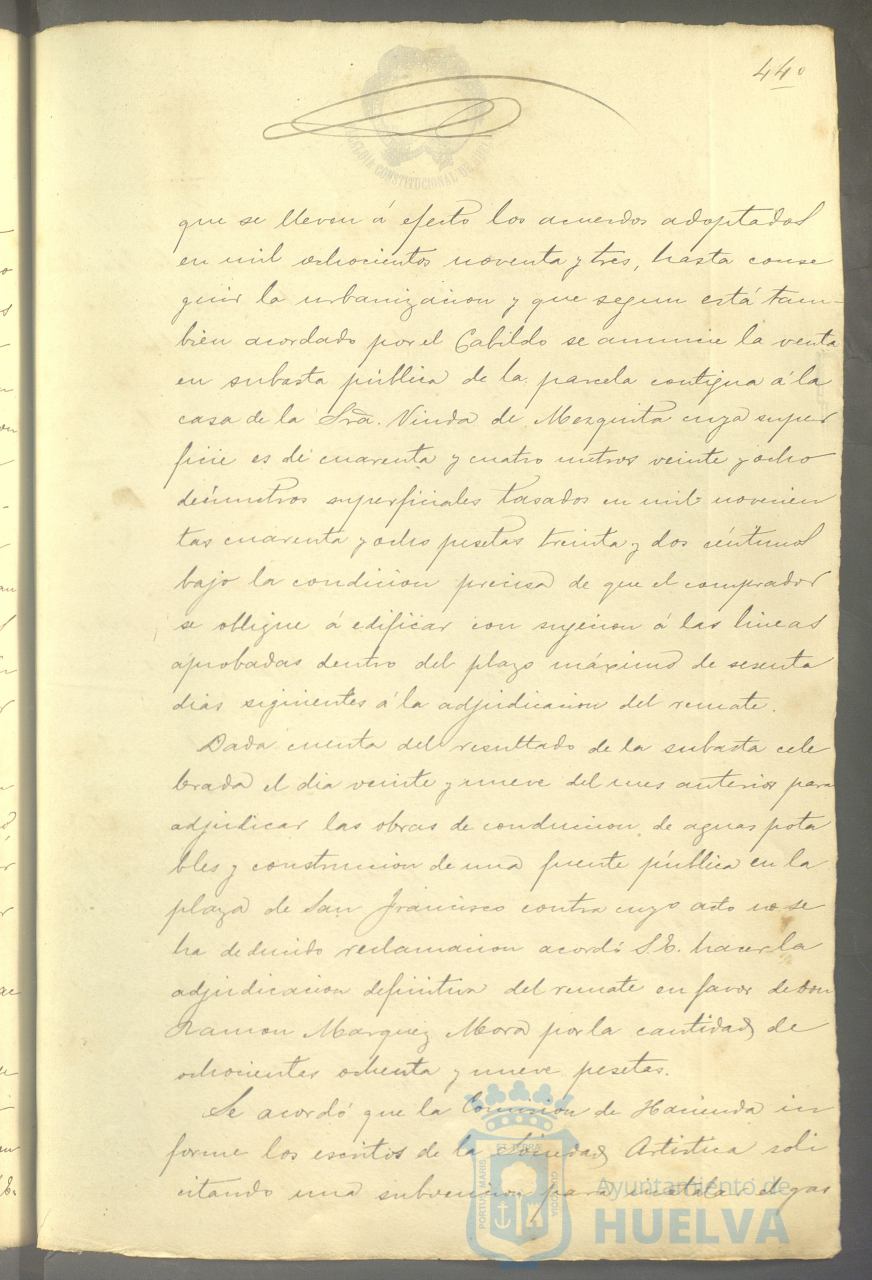 440
ALCALDIA CONSTITUCIONAL DE HUELVA
que se lleven á efecto los acuerdos adoptados
en mil ochocientos noventa y tres, hasta conse
guir la urbanizacion y que segun está tam-
bien acordado por el Cabildo se anuncie la venta
en subasta pública de la parcela contigua á la
casa de la Sra. Viuda de Mezquita cuya super
ficie es de cuarenta y cuatro metros veinte y ocho
decímetros superficiales tasados en mil novecien
tas cuarenta y ocho pesetas treinta y dos céntimos
bajo la condicion precisa de que el comprador
se obligue á edificar con sujecion á las líneas
aprobadas dentro del plazo máximo de sesenta
dias siguientes á la adjudicacion del remate.
Dada cuenta del resultado de la subasta cele
brada el dia veinte y nueve del mes anterior para
adjudicar las obras de conduccion de aguas pota
bles y construccion de una fuente pública en la
plaza de San Francisco contra cuyo acto no se
ha deducido reclamacion acordó S.E. hacer la
adjudicacion definitiva del remate en favor de don
Ramon Marquez Mora por la cantidad de
ochocientas ochenta y nueve pesetas.
Se acordó que la Comision de Hacienda in
forme los escritos de la Sociedad Artistica soli
citando una subvencion para
Ayuntamiento de
HUELVA
PORTUS MARIS
ET TERRÆ
CUSTODIA